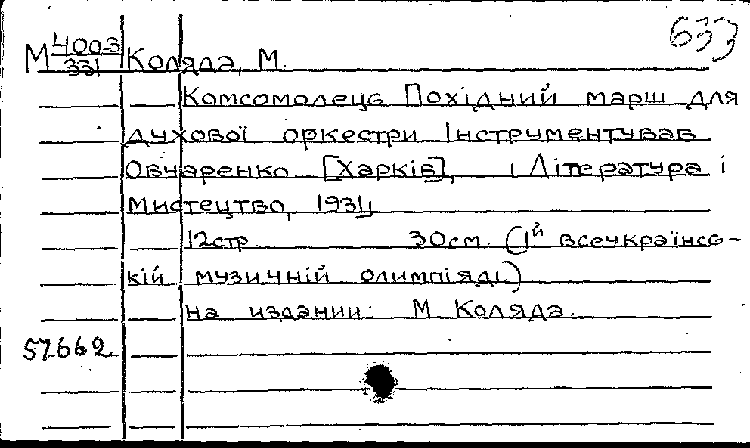 633
М 4003/331 Коляда, М.
Комсомолець Похідний марш для
духової оркестри Інструментував
Овчаренко [Харків], Література і
Мистецтво, 1931,
12стр 30см. (1й всеукраїнсь-
кій музичній олимпіяді.)
на издании: М Коляда.
57662